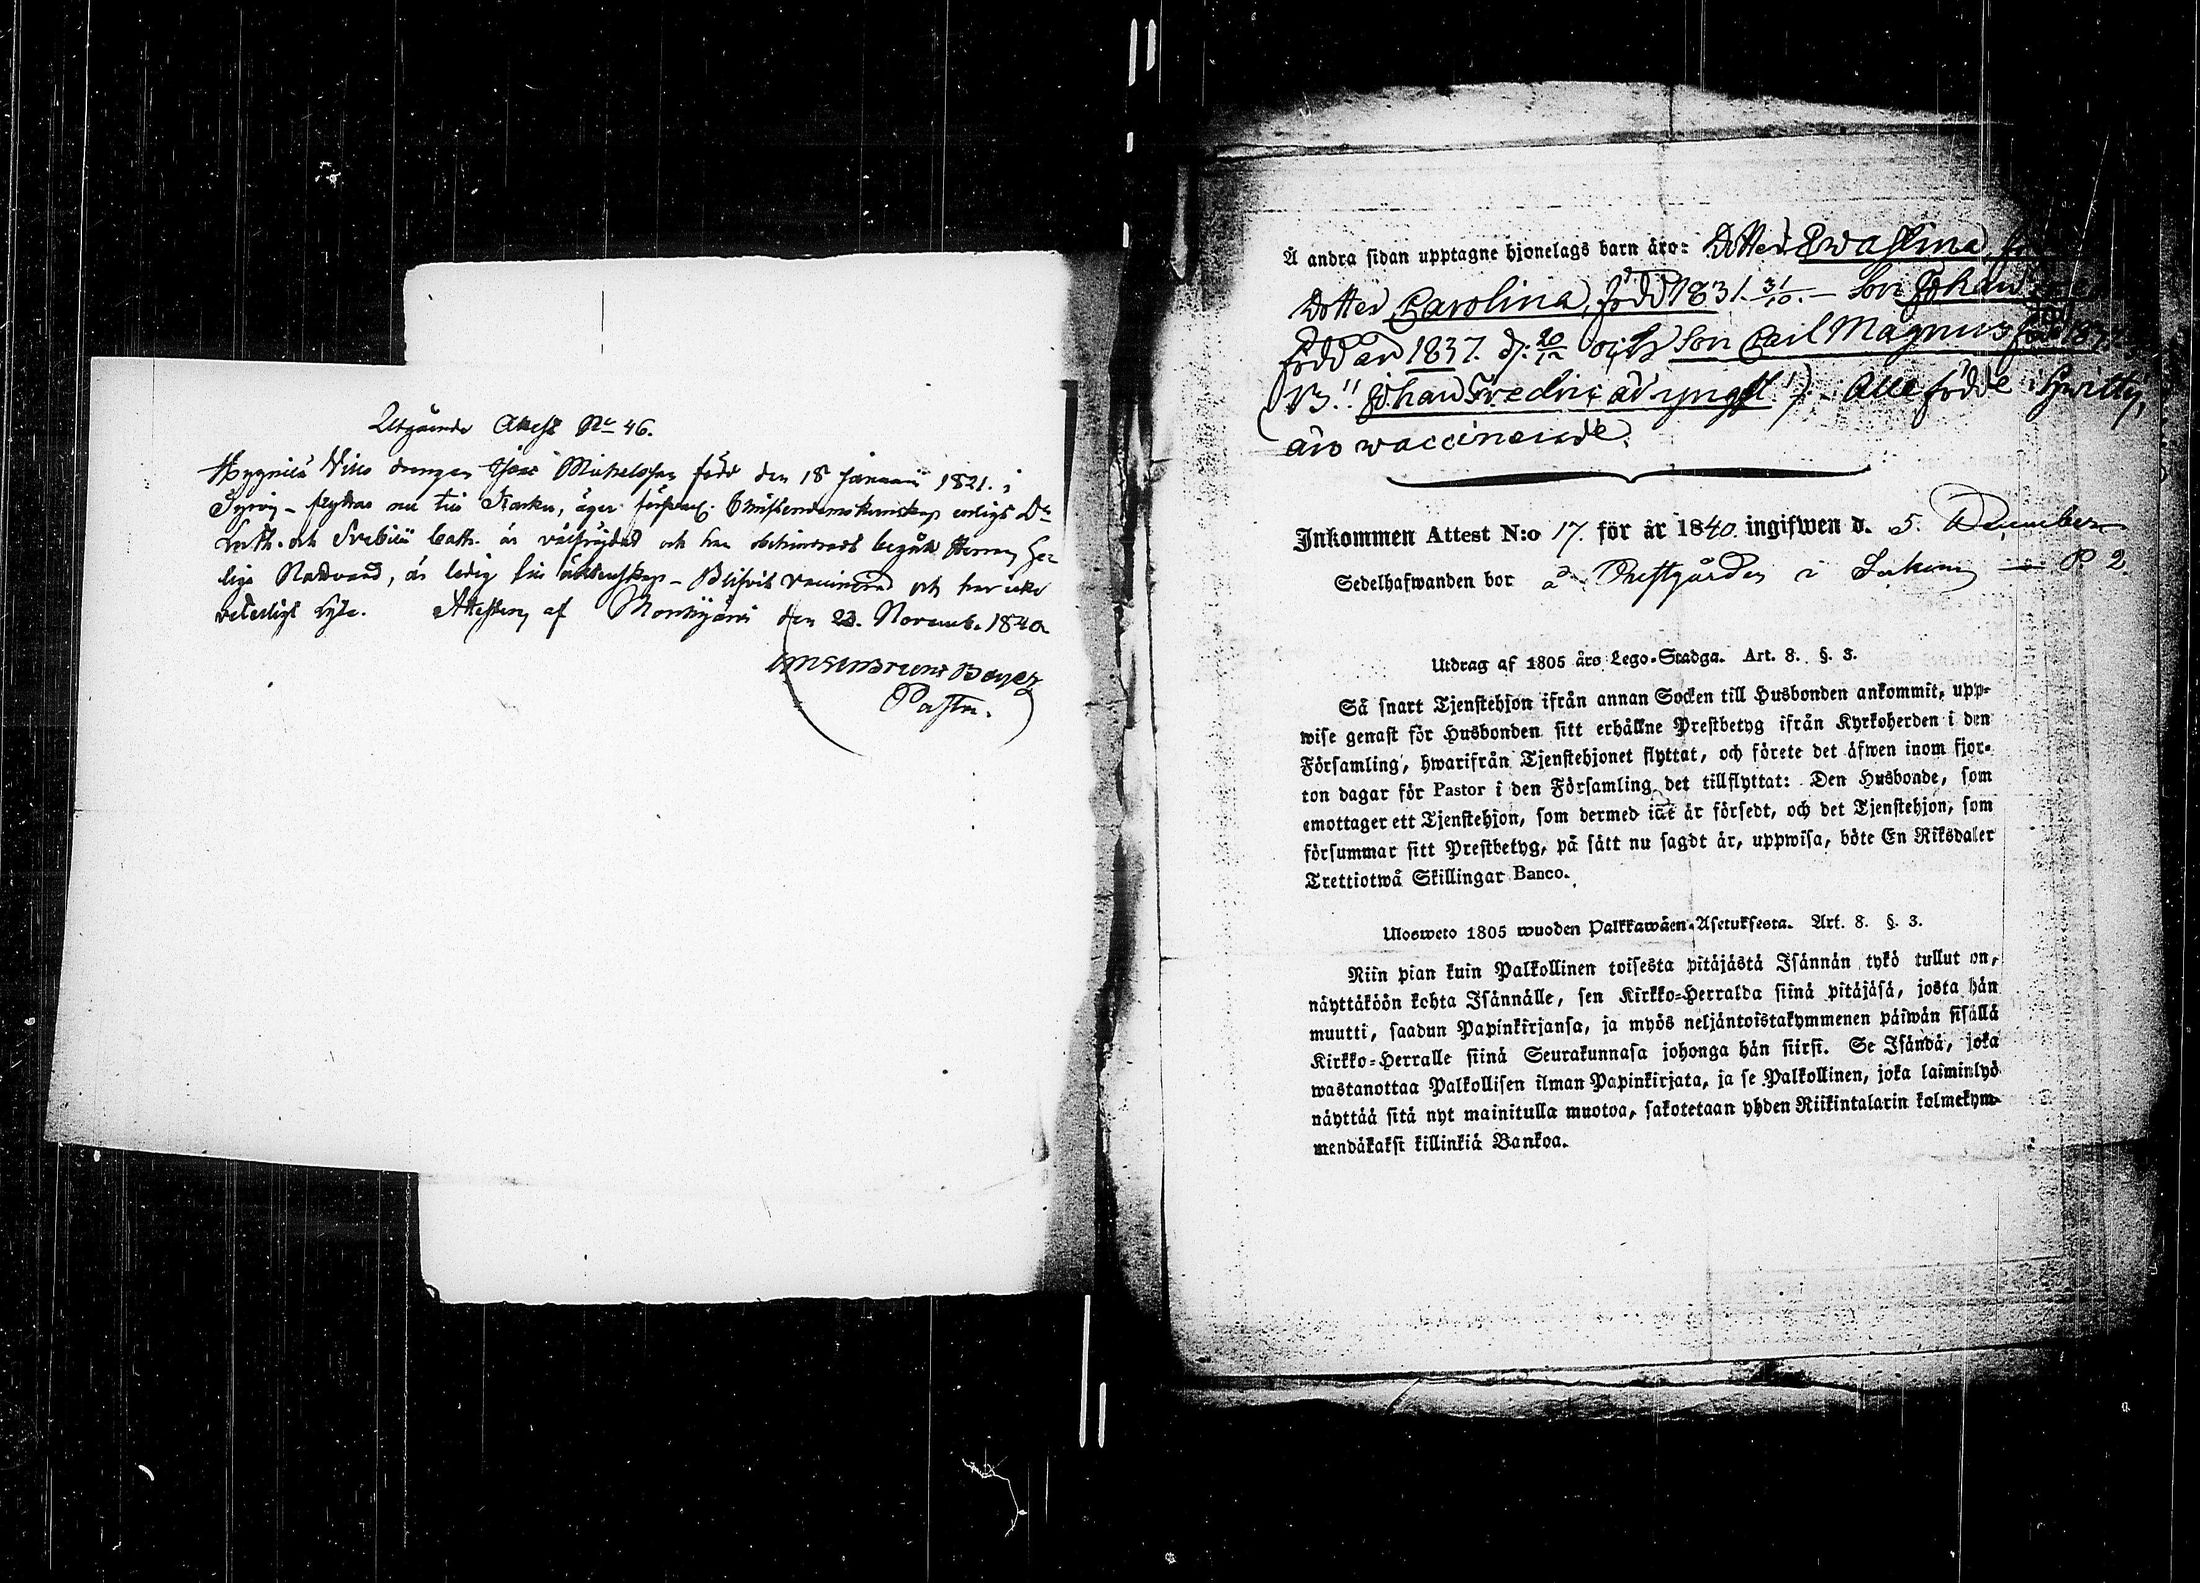 Utgående Attest No 46.
drengen Isac Michelsson född den 18 Januarii 1821. i
flyttas nu till äger Christendomskunskap enligt Dr
Luth. och Svebilii Cath. är välfrejdad och har obehindradt begått Herrans He-
liga Nattvard, är ledig till äktenskap – Blifvit vaccinerad och har icke
veterligt lyte. Attesteras af den 23. Novemb. 1840
Pastor.
Å andra sidan upptagne hjonelags barn äro: Dotter Eva Stina,
Dotter Carolina, född 1831. 31/10. – Son Johan
född år 1837. d: 20/12 och Son Carl Magnus född
(NB." Johan Fredric är yngst.") – Alla födde i
äro waccinerade.
Inkommen Attest N:o 17. för år 1840. ingifwen d. 5. December
Sedelhafwanden bor å Prestgården i P 2.
Utdrag af 1805 års Lego-Stadga. Art. 8. §. 3.
Så snart Tjenstehjon ifrån annan Socken till Husbonden ankommit, upp-
wise genast för Husbonden sitt erhållne Prestbetyg ifrån Kyrkoherden i den
Församling, hwarifrån Tjenstehjonet flyttat, och förete det äfwen inom fjor-
ton dagar för Pastor i den Församling det tillflyttat: Den Husbonde, som
emottager ett Tjenstehjon, som dermed icke är försedt, och det Tjenstehjon, som
försummar sitt Prestbetyg, på sätt nu sagdt är, uppwisa, böte En Riksdaler
Trettiotwå Skillingar Banco.
Ulosweto 1805 wuoden Palkkawäen-Asetuksesta. Art. 8. §. 3.
Niin pian kuin Palkollinen toisesta pitäjästä Isännän tykö tullut on,
näyttäköön kohta Isännälle, sen Kirkko-Herralda siinä pitäjäsä, josta hän
muutti, saadun Papinkirjansa, ja myös neljäntoistakymmenen päiwän sisällä
Kirkko-Herralle siinä Seurakunnasa johonga hän siirsi. Se Isändä, joka
wastanottaa Palkollisen ilman Papinkirjata, ja se Palkollinen, joka laiminlyö
näyttää sitä nyt mainitulla muotoa, sakotetaan yhden Riikintalarin kolmekym-
mendäkaksi killinkiä Bankoa.